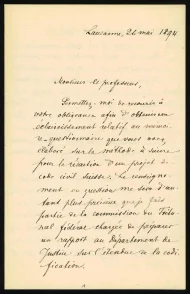 Lausanne, 24 mai 1894
Monsieur le professeur,
Permettez-moi de recourir à
votre obligeance afin d'obtenir un
éclaircissement relatif au
questionnaire que vous avez
élaboré sur la méthode à suivre
pour la rédaction d'un projet de
code civil suisse. Le renseigne-
ment en question me sera d'au-
tant plus précieux que je fais
partie de la commission du Tribu-
nal fédéral chargée de préparer
un rapport au Département de
Justice sur l'étendue de la codi-
fication.